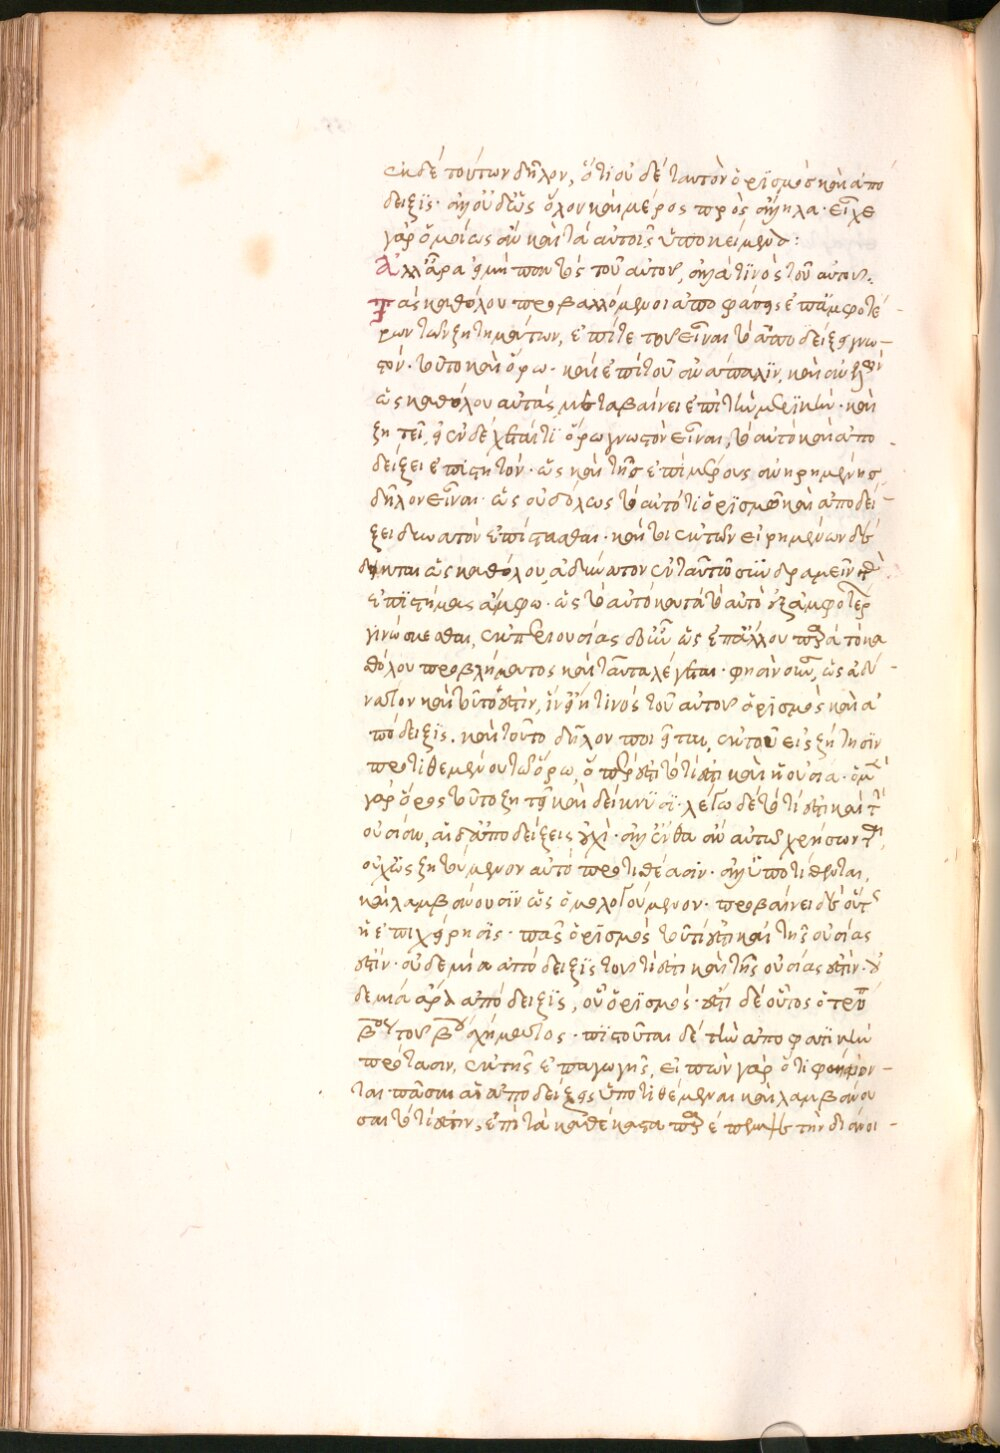 ἐκ δὲ τούτων δῆλον, ὅτι οὐδὲ ταυτὸν ὁρισμὸς καὶ ἀπό
δειξις· ἀλλ' οὐδ' ὡς ὅλον καὶ μέρος πρὸς ἄλληλα· εἶχε
γὰρ ὁμοίως ἂν καὶ τὰ αὐτοῖς ὑποκείμενα:
Ἀλλ' ἆρα εἰ μὴ παντὸς τοῦ αὐτοῦ, ἀλλά τινος τοῦ αὐτοῦ.
Τὰς καθόλου προβαλλόμενοι ἀποφάσεις ἐπ' ἀμφοτέ
ρων τῶν ζητημάτων, ἐπί τε τοῦ εἶναι τὸ ἀποδείξει γνω-
στόν· τοῦτο καὶ ὅρῳ· καὶ ἐπὶ τοῦ ἀνάπαλιν, καὶ
ὡς καθόλου αὐτάς, μεταβαίνει ἐπὶ τὴν μερικήν· καὶ
ζητεῖ, εἰ ἐνδέχεταί τι ὅρῳ γνωστὸν εἶναι, τὸ αὐτὸ καὶ ἀπο
δείξει ἐπιστητόν· ὡς καὶ τῆς ἐπὶ μέρους ἀνῃρημένης
δῆλον εἶναι· ὡς οὐδ' ὅλως τὸ αὐτό τι ὁρισμῷ καὶ ἀποδεί
ξει δυνατὸν ἐπίστασθαι· καί τοι ἐκ τῶν εἰρημένων δέ
δεικται ὡς καθόλου ἀδύνατον ἐν ταὐτῷ συνδραμεῖν
ἐπιστήμας ἄμφω· ὡς τὸ αὐτὸ κατὰ τὸ αὐτὸ ἐξ ἀμφοτέρ
γινώσκεσθαι, ἐκ περιουσίας ὡς ἐπ' ἄλλου παρὰ τὸ κα
θόλου προβλήματος καὶ ταῦτα λέγεται· φησὶν οὖν, ὡς ἀδύ-
νατον καὶ τοῦτό ἐστιν, ἵν' ᾖ τινὸς τοῦ αὐτοῦ ὁρισμὸς καὶ ἀ
πόδειξις. καὶ τοῦτο δῆλον ποιεῖται, ἐκ τοῦ εἰς ζήτησιν
προτιθεμένου τῷ ὅρῳ, ὅπερ ἐστὶ τὸ τί ἐστι καὶ ἡ οὐσία·
γὰρ ὅρος τοῦτο ζητεῖ καὶ δείκνυσι· λέγω δὲ τὸ τί ἐστι καὶ τὴν
οὐσίαν, αἱ δ' ἀποδείξεις οὐχί· ἀλλ' ἔνθα ἂν αὐτῷ χρήσωνται,
οὐχ ὡς ζητούμενον αὐτὸ προτιθέασιν· ἀλλ' ὑποτίθενται,
καὶ λαμβάνουσιν ὡς ὁμολογούμενον· προβαίνει δὲ οὕτως
ἡ ἐπιχείρησις· πᾶς ὁρισμὸς τοῦ τί ἐστι καὶ τῆς οὐσίας
ἐστίν· οὐδεμία ἀπόδειξις τοῦ τί ἐστι καὶ τῆς οὐσίας ἐστίν· οὐ
δεμία ἄρα ἀπόδειξις, οὗ ὁρισμός· ἔστι δὲ οὗτος ὁ τρόπος
βος τοῦ βου σχήματος· πιστοῦται δὲ τὴν ἀποφατικὴν
πρότασιν, ἐκ τῆς ἐπαγωγῆς, εἰπὼν γὰρ ὅτι φαίνον-
ται πᾶσαι αἱ ἀποδείξεις ὑποτιθέμεναι καὶ λαμβάνου
σαι τὸ τί ἐστιν, ἐπὶ τὰ καθέκαστα παρέπεμψε τὴν διάνοι-